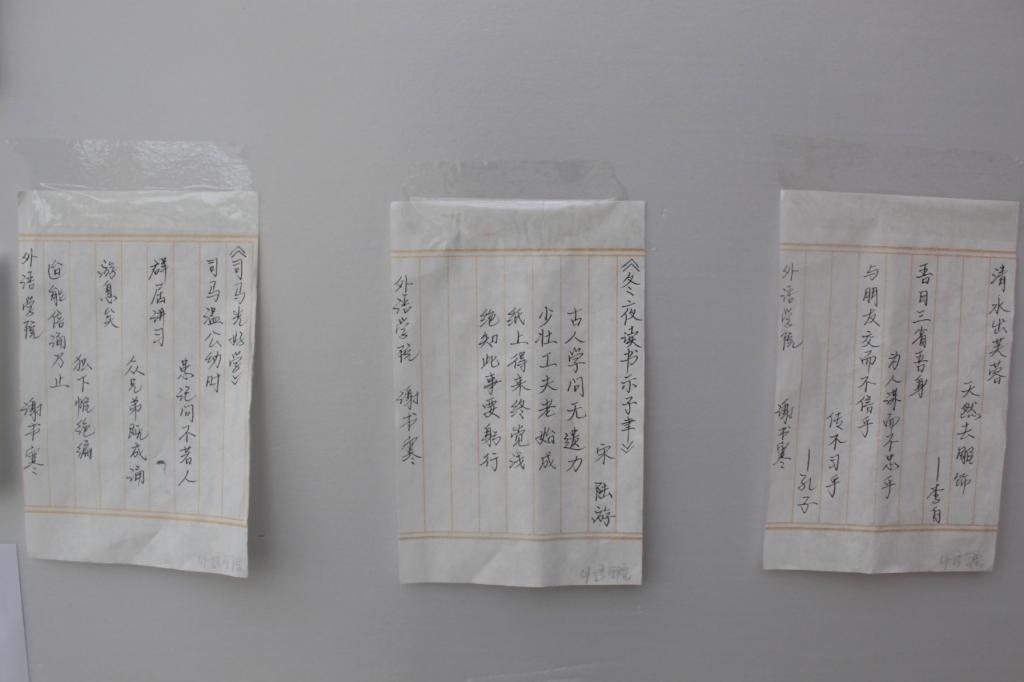 《司马光好学》
司马温公幼时
患记问不若人
群居讲习
众兄弟既成诵
游息矣
独下帷绝编
迨能倍诵乃止
外语学院 谢书寒
外语学院
《冬夜读书示子聿》
宋 陆游
古人学问无遗力
少壮工夫老始成
纸上得来终觉浅
绝知此事要躬行
外语学院 谢书寒
外语学院
清水出芙蓉
天然去雕饰
—李白
吾日三省吾身
为人谋而不忠乎
与朋友交而不信乎
传不习乎
—孔子
外语学院 谢书寒
外语学院